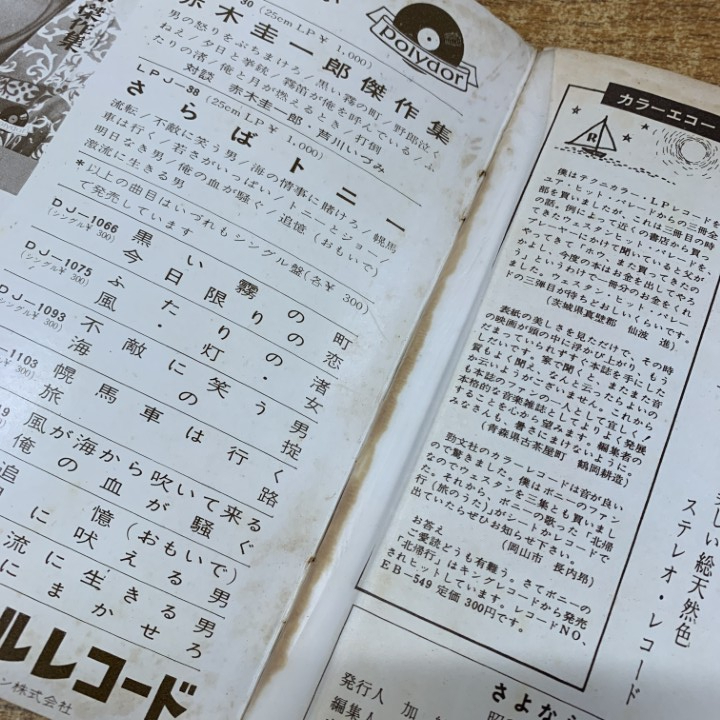 傑作集
30 (25cm LP ¥ 1,000)
赤木圭一郎傑作集
男の怒りをぶちまけろ/黒い霧の町/野郎泣く
ねえ/夕日と拳銃/霧笛が俺を呼んでいる/ふ
たりの渚/俺と月が燃えるとき/打倒
対談 赤木圭一郎 芦川いづみ
LPJ-38 (25cm LP ¥ 1,000)
さらばトニー
流転/不敵に笑う男/海の情事に賭けろ/幌馬
車は行く/若さがいっぱい/トニーとジョー/
明日なき男/俺の血が騒ぐ/追憶(おもいで)
激流に生きる男
*以上の曲目はいずれもシングル盤(各¥ 300)
で発売しています
DJ-1066
(シングル¥ 300)
黒い霧の町
今日限りの恋
DJ-1075
(シングル¥ 300)
ふたりの渚
風・灯・女
DJ-1093
(シングル¥ 300)
不敵に笑う男
海の掟
1103
¥ 300)
幌馬車は行く
旅路
風が海から吹いて来る
俺の血が騒ぐ
追憶(おもいで)
に吠える男
流に生きる男
にまかせろ
ルレコード
ン株式会社
polydor
カラーエコー
R
僕はテクニカラー・LPレコードを
ユア・ヒット・パレードからの三冊全
部を買いましたが、これは三冊目の時
の話。例によって近くの書店から買っ
てきたウェスタン・ヒット・パレードを、
プレーヤーにかけて聞いていると父が
やってきて「ホウ、また買ってきたの
かよし、今度の本はお金を出してやろ
う」というわけで一冊分のお金をくれ
ました。ウェスタン・ヒット・パレー
ドの三弾目が待ちどおしいくらいです。
(茨城県真壁郡 仙波 進)
表紙の美しさを見ただけで、その時
の映画が頭の中に浮かび上がり、もう
だまっていられず、すぐ本誌を手にした
しだいです。家で聞くと、またまた音
質もよく聞え、なんと云ったらよいの
かいいようがございません。これから
も本誌のファンの一人として宜しく!
本格的な音楽雑誌としてより良く発展
することを心から望みます。編集者の
みなさんも、暑さにまけないように。
(青森県古茶屋町 鶴岡耕造)
勁文社のカラーレコードは音が良い
ので驚きました。僕はボニーのファン
なのでウェスタンを三集とも買いまし
た。それから、ボニーの歌った「北帰
行(旅のうた)」がシートかレコードで
出ていたらぜひお知らせ下さい。
(岡山市 長内昻)
お答え
ご愛読どうも有難う。さてボニーの
「北帰行」はキングレコードから発売
されヒットしています。レコードNO、
EB-549 定価 300円です。
しい総天然色
ステレオ・レコード
さよな
昭
発行人 加
編集人